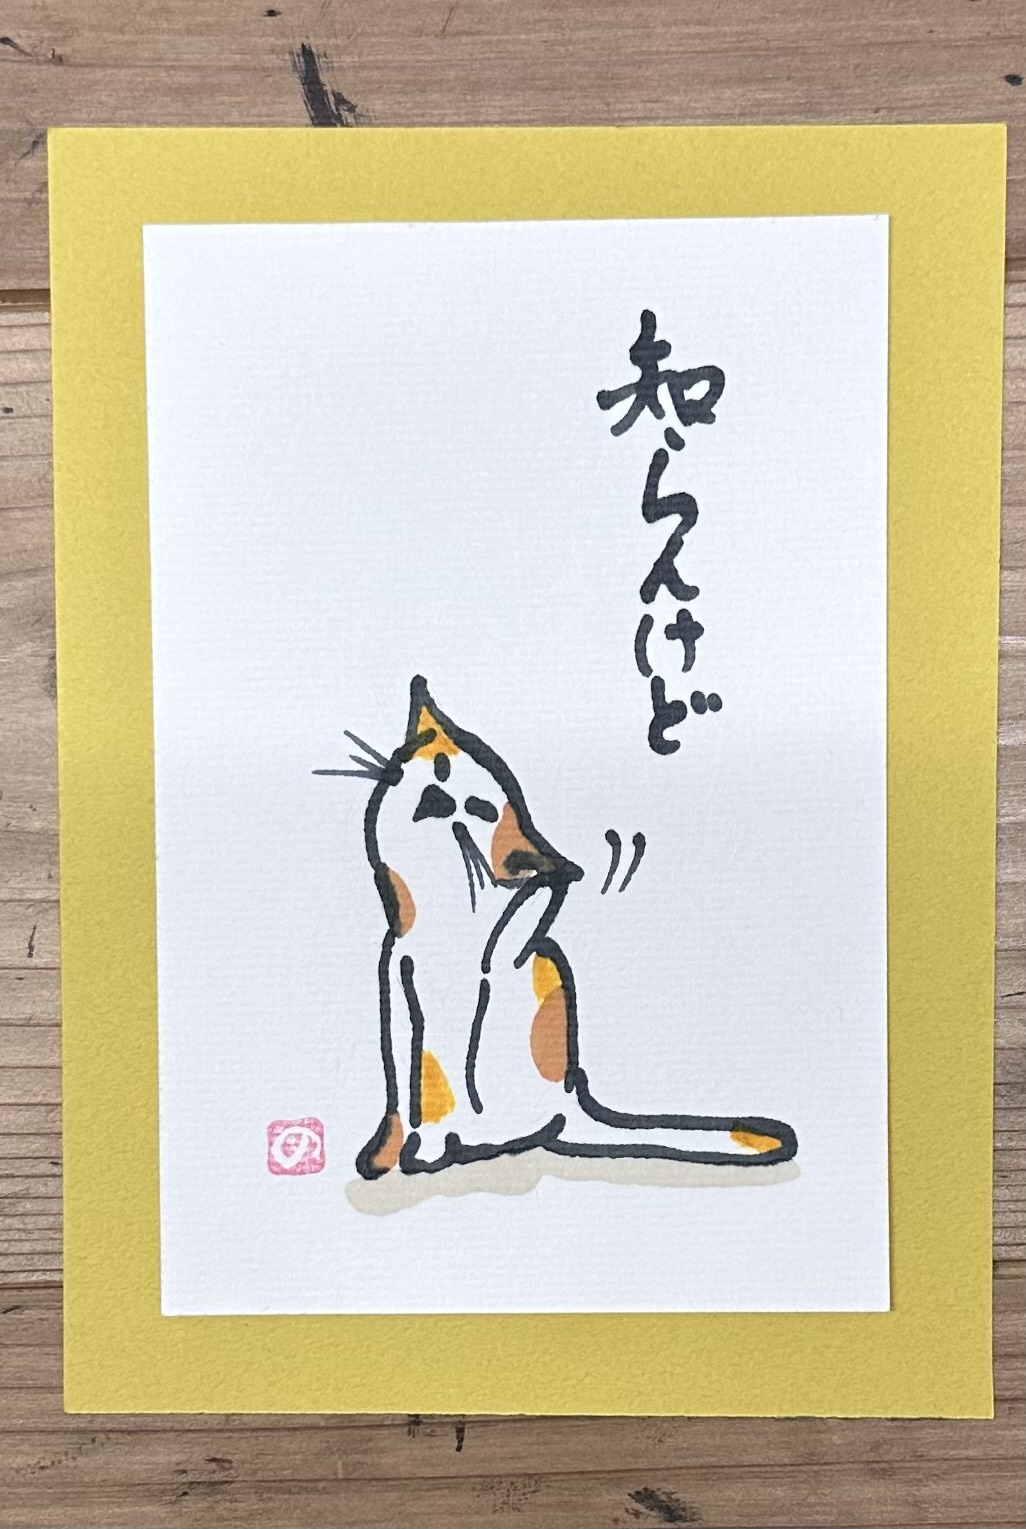 知らんけど
の